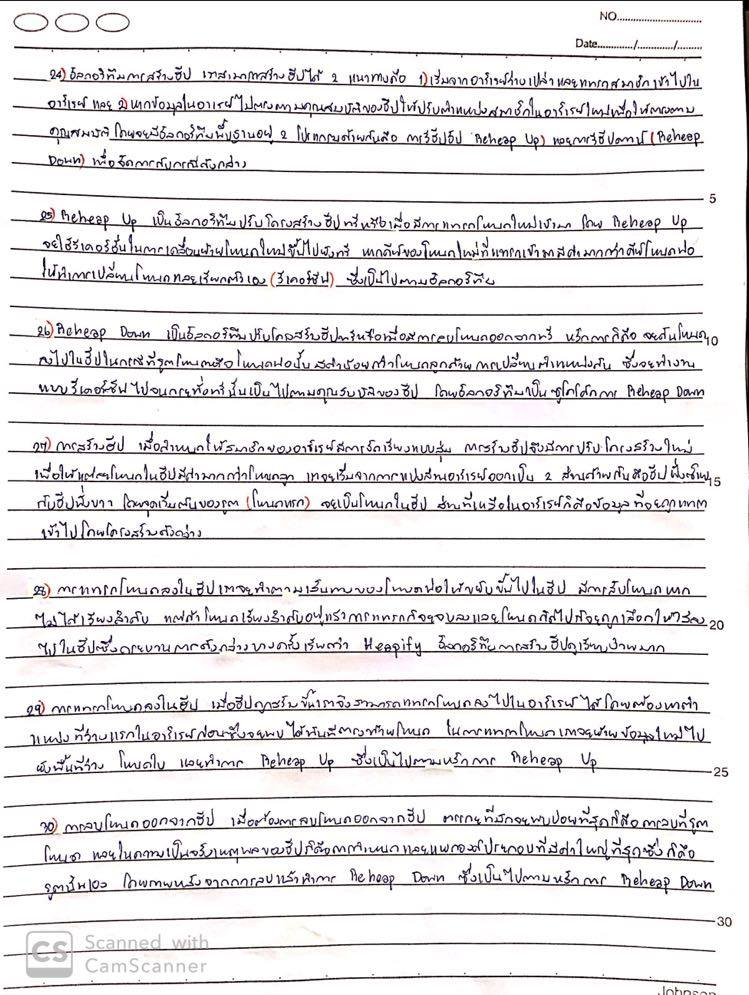 NO.
Date............/............/.........
24) อัลกอริทึมการสร้างฮีป เราสามารถสร้างฮีปได้ 2 แนวทางคือ 1) เริ่มจากอาร์เรย์ว่างเปล่าและแทรกสมาชิกเข้าไปใน
อาร์เรย์ และ 2) หากข้อมูลในอาร์เรย์ไม่ตรงตามคุณสมบัติของฮีปให้ปรับตำแหน่งสมาชิกในอาร์เรย์ใหม่เพื่อให้ตรงตาม
คุณสมบัติ โดยจะมีอัลกอริทึมพื้นฐานอยู่ 2 โปรแกรมด้วยกันคือ การรีฮีปอัป Reheap Up) และการรีฮีปดาวน์ (Reheap
Down) เพื่อจัดการกับกรณีดังกล่าว
5
25) Reheap Up เป็นอัลกอริทึมปรับโครงสร้างฮีปทรีหรือเมื่อมีการแทรกโหนดใหม่เข้ามา โดย Reheap Up
จะใช้รีเคอร์ชันในการเคลื่อนย้ายโหนดใหม่ขึ้นไปยังทรี หากคีย์ของโหนดใหม่ที่แทรกเข้ามามีค่ามากกว่าคีย์โหนดพ่อ
ให้ทำการเปลี่ยนโหนดและเรียกตัวเอง (รีเคอร์ซีฟ) ซึ่งเป็นไปตามอัลกอริทึม
26) Reheap Down เป็นอัลกอริทึมปรับโครงสร้างฮีปทรีหรือเมื่อมีการลบโหนดออกจากทรี หลักการก็คือ จะดันโหนด
10
ลงไปในฮีปในกรณีที่รูตโหนดหรือโหนดพ่อนั้น มีค่าน้อยกว่าโหนดลูกด้วยการเปลี่ยนตำแหน่งกัน ซึ่งจะทำงาน
แบบรีเคอร์ซีฟไปจนกระทั่งทรีนั้นเป็นไปตามคุณสมบัติของฮีป โดยอัลกอริทึมเป็นซูโดโค้ดการ Reheap Down
27) การสร้างฮีป เมื่อกำหนดให้สมาชิกของอาร์เรย์มีการจัดเรียงแบบสุ่ม การสร้างฮีปจึงมีการปรับโครงสร้างใหม่
เพื่อให้แต่ละโหนดในฮีปมีค่ามากกว่าโหนดลูก เราจะเริ่มจากการแบ่งส่วนอาร์เรย์ออกเป็น 2 ส่วนด้วยกันคือฮีปฝั่งซ้าย
15
กับฮีปฝั่งขวา โดยจุดเริ่มต้นของรูต (โหนดแรก) จะเป็นโหนดในฮีป ส่วนที่เหลือในอาร์เรย์ก็คือข้อมูลที่จะถูกแทรก
เข้าไปโดยโครงสร้างดังกล่าว
28) การแทรกโหนดลงในฮีป เราจะทำตามเส้นทางของโหนดพ่อให้ขยับขึ้นไปในฮีป มีการสลับโหนดหาก
ไม่ได้เรียงลำดับ แต่ถ้าโหนดเรียงลำดับอยู่แล้วการแทรกก็จะจบลงและโหนดถัดไปก็จะถูกเลือกให้ใส่ลง
20
ไปในฮีปซึ่งกระบวนการดังกล่าวบางครั้งเรียกว่า Heapify อัลกอริทึมการสร้างฮีปดูเรียบง่ายมาก
29) การแทรกโหนดลงในฮีป เมื่อฮีปถูกสร้างขึ้นเราจึงสามารถแทรกโหนดลงไปในอาร์เรย์ได้โดยต้องหาตำ
แหน่งที่ว่างแรกในอาร์เรย์ก่อนซึ่งจะพบได้ทันทีตรงท้ายโหนด ในการแทรกโหนดเราจะย้ายข้อมูลใหม่ไป
ยังพื้นที่ว่าง โหนดใบ และทำการ Reheap Up ซึ่งเป็นไปตามหลักการ Reheap Up
25
30) การลบโหนดออกจากฮีป เมื่อต้องการลบโหนดออกจากฮีป ตรรกะที่มักจะพบบ่อยที่สุดก็คือการลบที่รูต
โหนด และในความเป็นจริงเหตุผลของฮีปก็คือการกำหนดและแยกองค์ประกอบที่มีค่าใหญ่ที่สุดซึ่งก็คือ
รูตนั่นเอง โดยภายหลังจากการลบแล้วทำการ Reheap Down ซึ่งเป็นไปตามหลักการ Reheap Down
30
CS Scanned with
CamScanner
Johnson